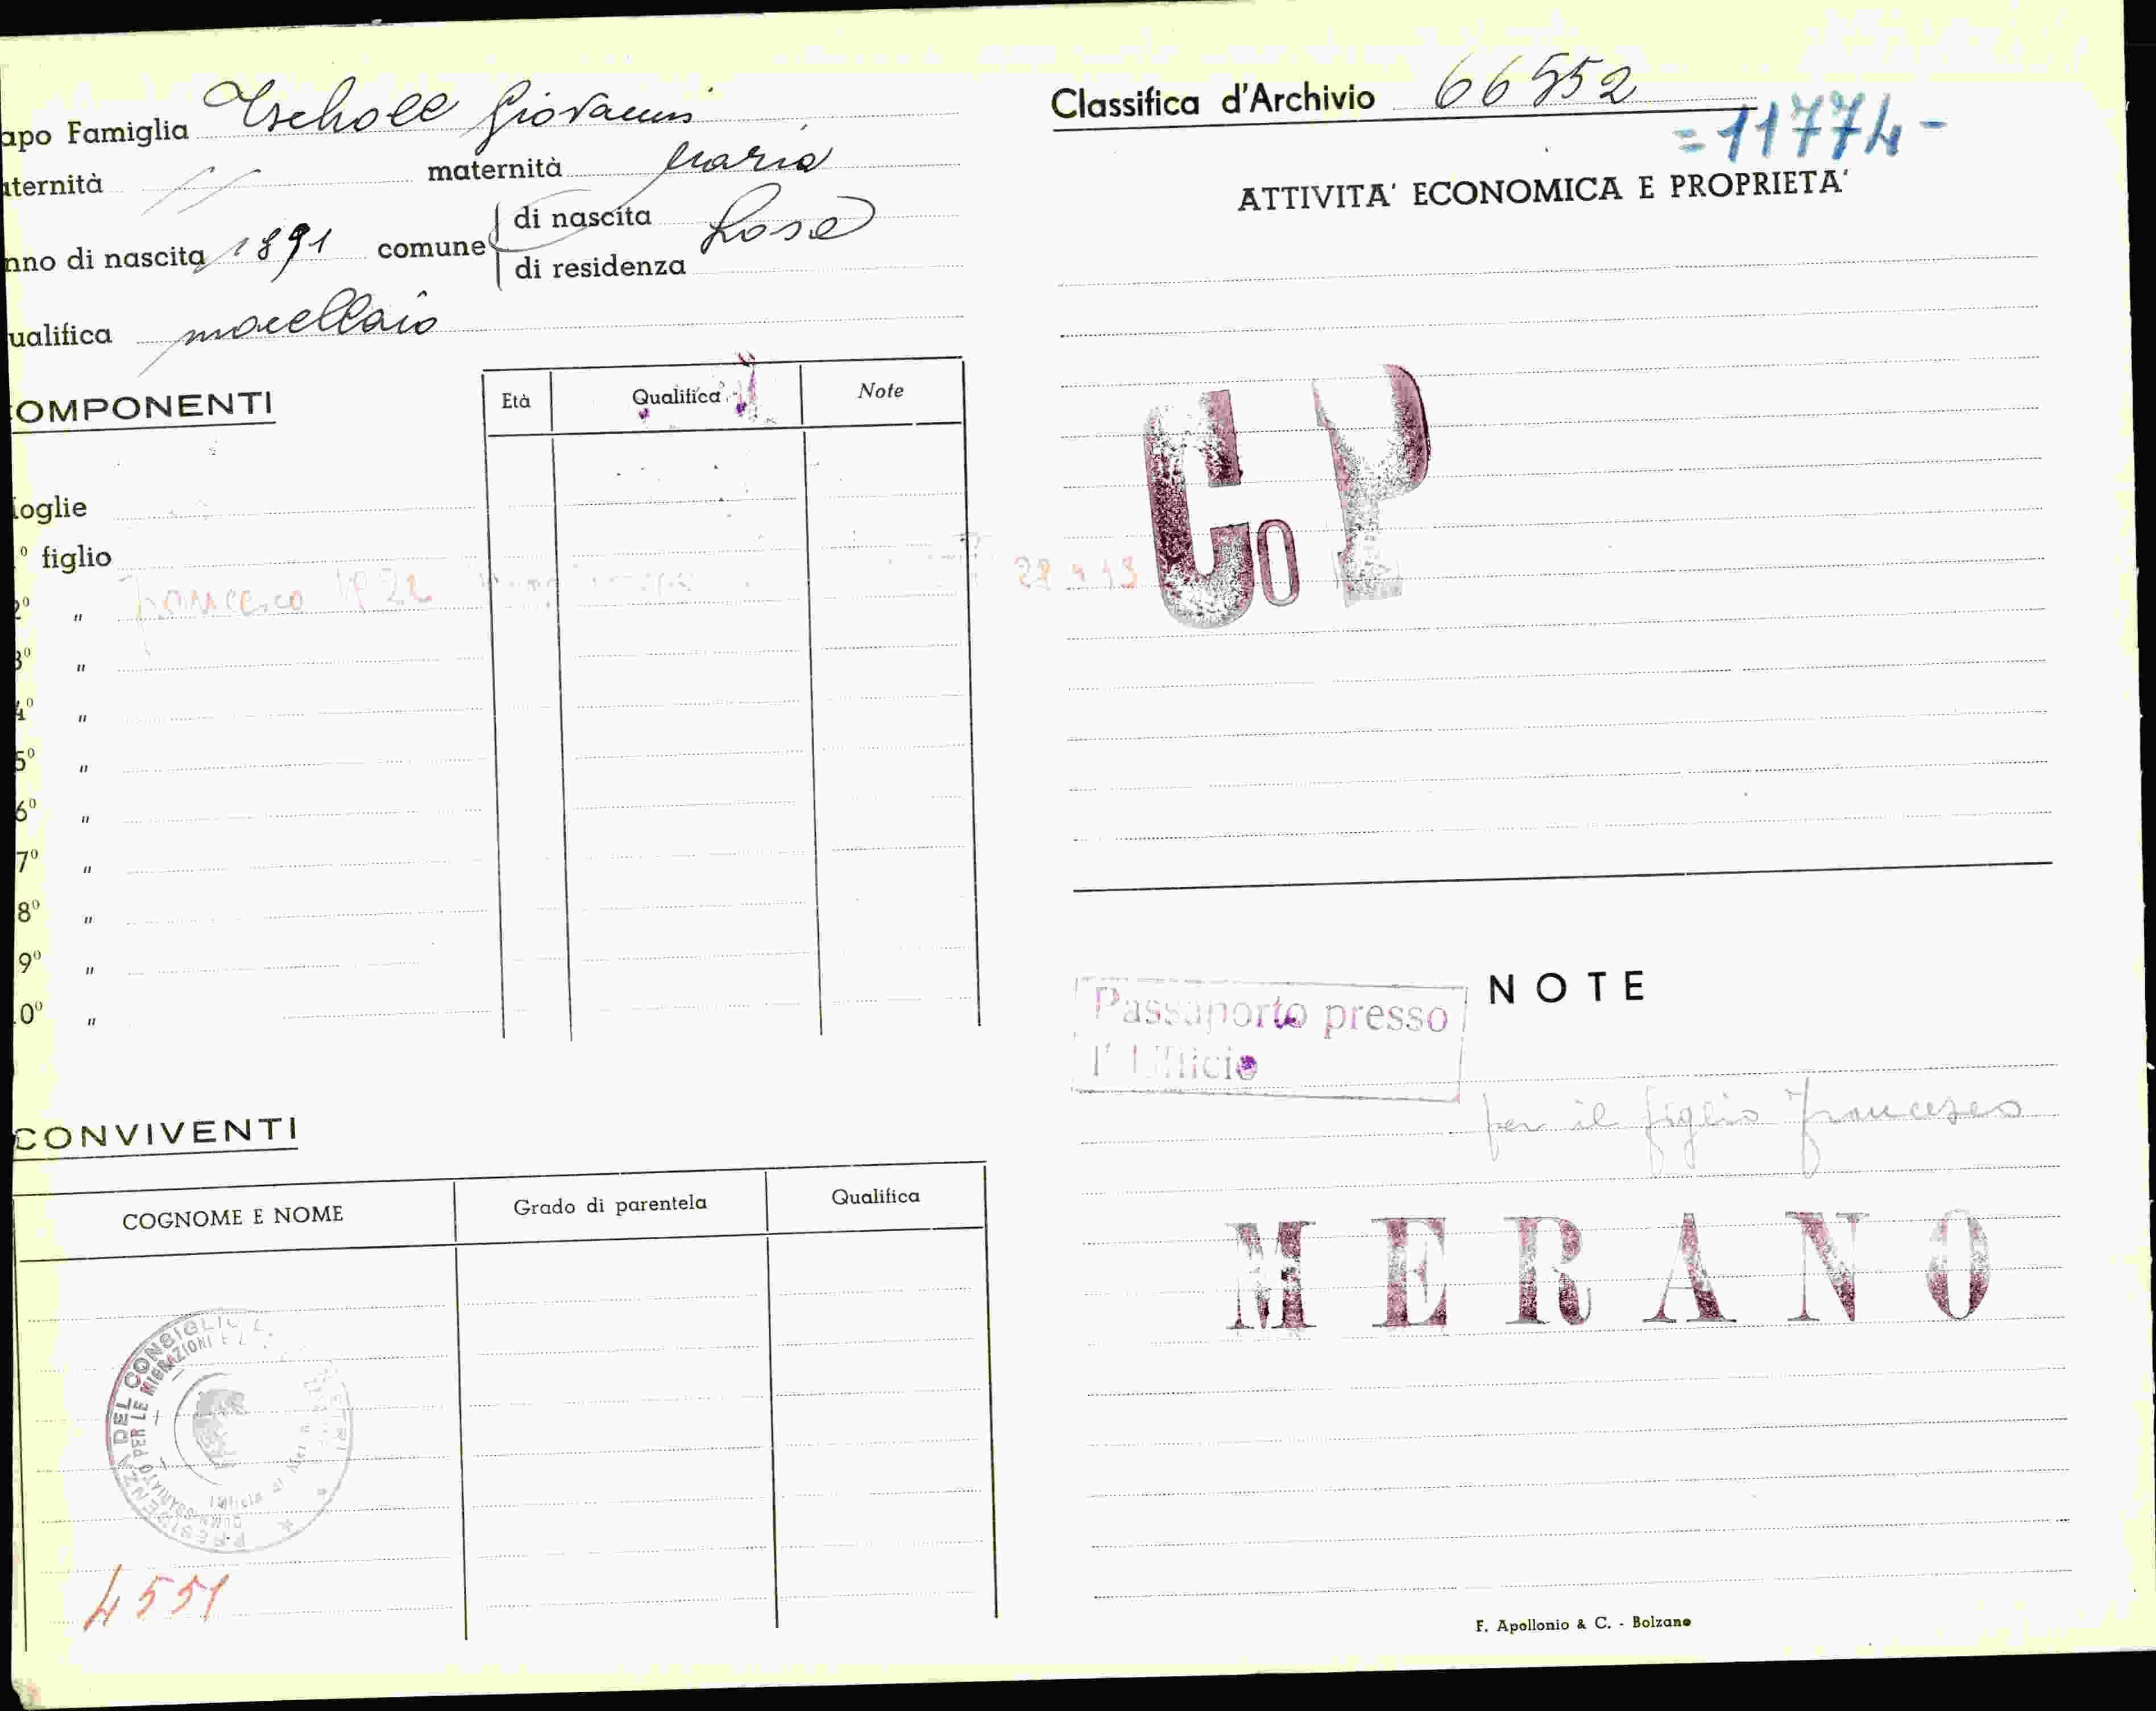 apo Famiglia Tscholl Giovanni
aternità // maternità Maria
nno di nascita 1891 comune di nascita
di residenza
ualifica macellaio
OMPONENTI
Età Qualifica Note
oglie
° figlio
2° " Francesco 1922
3° "
4° "
5° "
6° "
7° "
8° "
9° "
0° "
CONVIVENTI
COGNOME E NOME Grado di parentela Qualifica
PRESIDENZA DEL CONSIGLIO
PER LE MIGRAZIONI E
4551
Classifica d'Archivio 66552
= 11774 -
ATTIVITA' ECONOMICA E PROPRIETA'
Co P
NOTE
Passaporto presso
l'Ufficio
per il figlio Francesco
MERANO
F. Apollonio & C. - Bolzano